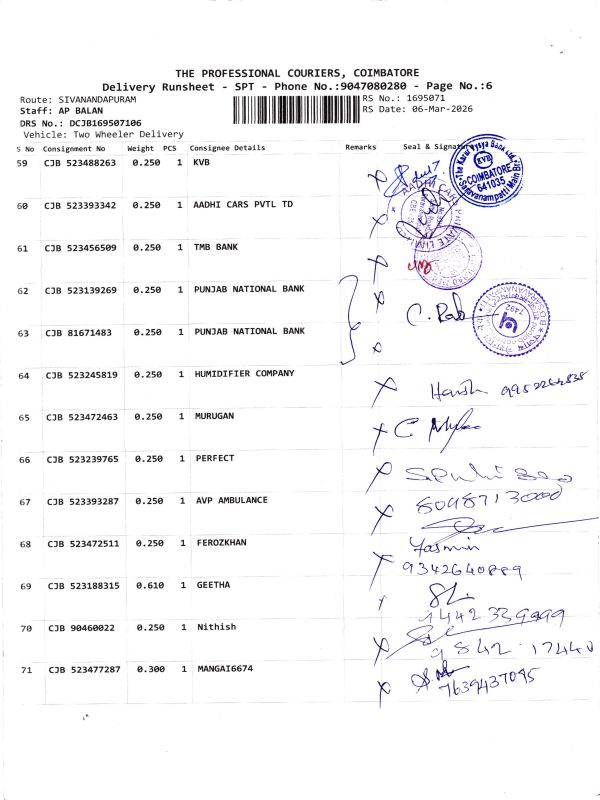 THE PROFESSIONAL COURIERS, COIMBATORE
Delivery Runsheet - SPT - Phone No.:9047080280 - Page No.:6
Route: SIVANANDAPURAM RS No.: 1695071
Staff: AP BALAN RS Date: 06-Mar-2026
DRS No.: DCJB169507106
Vehicle: Two Wheeler Delivery
S No Consignment No Weight PCS Consignee Details Remarks Seal & Signature
59 CJB 523488263 0.250 1 KVB
The Karur Vysya Bank Ltd.
KVB
COIMBATORE
641035
60 CJB 523393342 0.250 1 AADHI CARS PVTL TD
61 CJB 523456509 0.250 1 TMB BANK
62 CJB 523139269 0.250 1 PUNJAB NATIONAL BANK
7492
63 CJB 81671483 0.250 1 PUNJAB NATIONAL BANK
64 CJB 523245819 0.250 1 HUMIDIFIER COMPANY
65 CJB 523472463 0.250 1 MURUGAN
66 CJB 523239765 0.250 1 PERFECT
67 CJB 523393287 0.250 1 AVP AMBULANCE
8098713000
68 CJB 523472511 0.250 1 FEROZKHAN Yasmin
9342640889
69 CJB 523188315 0.610 1 GEETHA
70 CJB 90460022 0.250 1 Nithish
9842 17440
71 CJB 523477287 0.300 1 MANGAI6674
7639437095